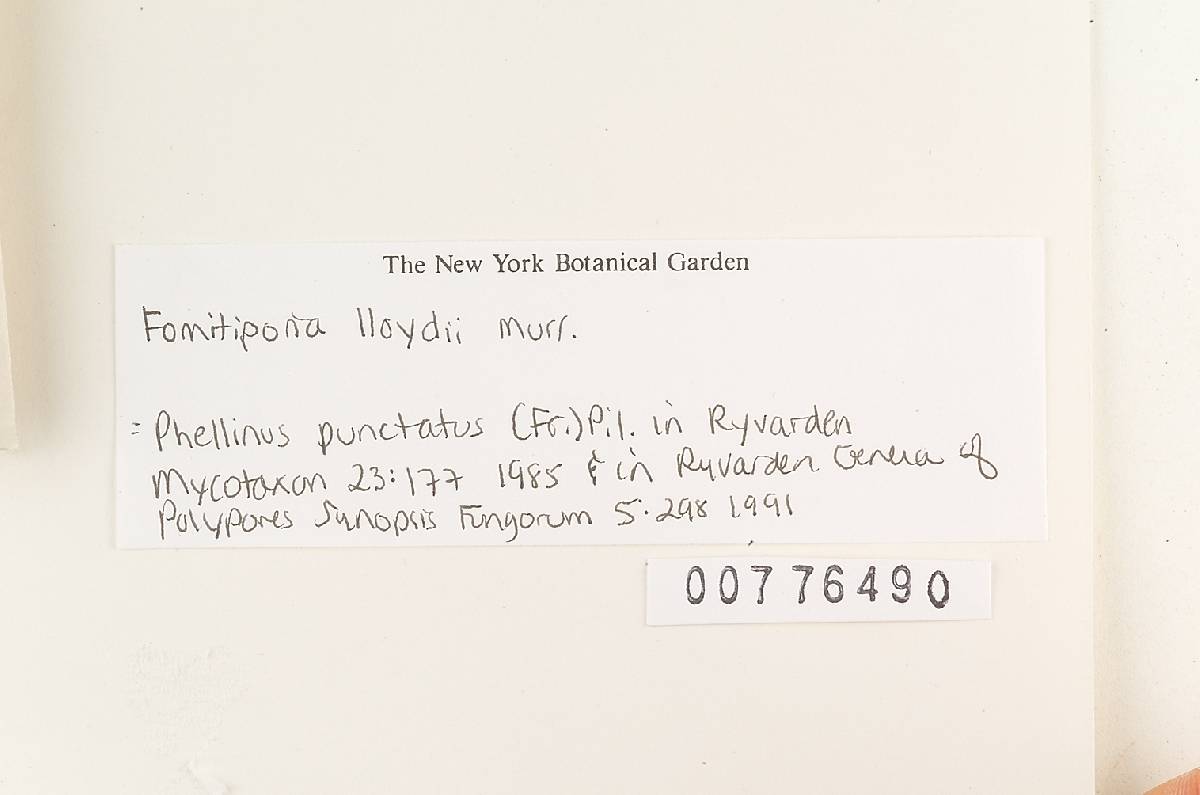 The New York Botanical Garden
Fomitiporia lloydii Murr.
= Phellinus punctatus (Fr.) Pil. in Ryvarden
Mycotaxon 23:177 1985 & in Ryvarden Genera of
Polypores Synopsis Fungorum 5:298 1991
00776490